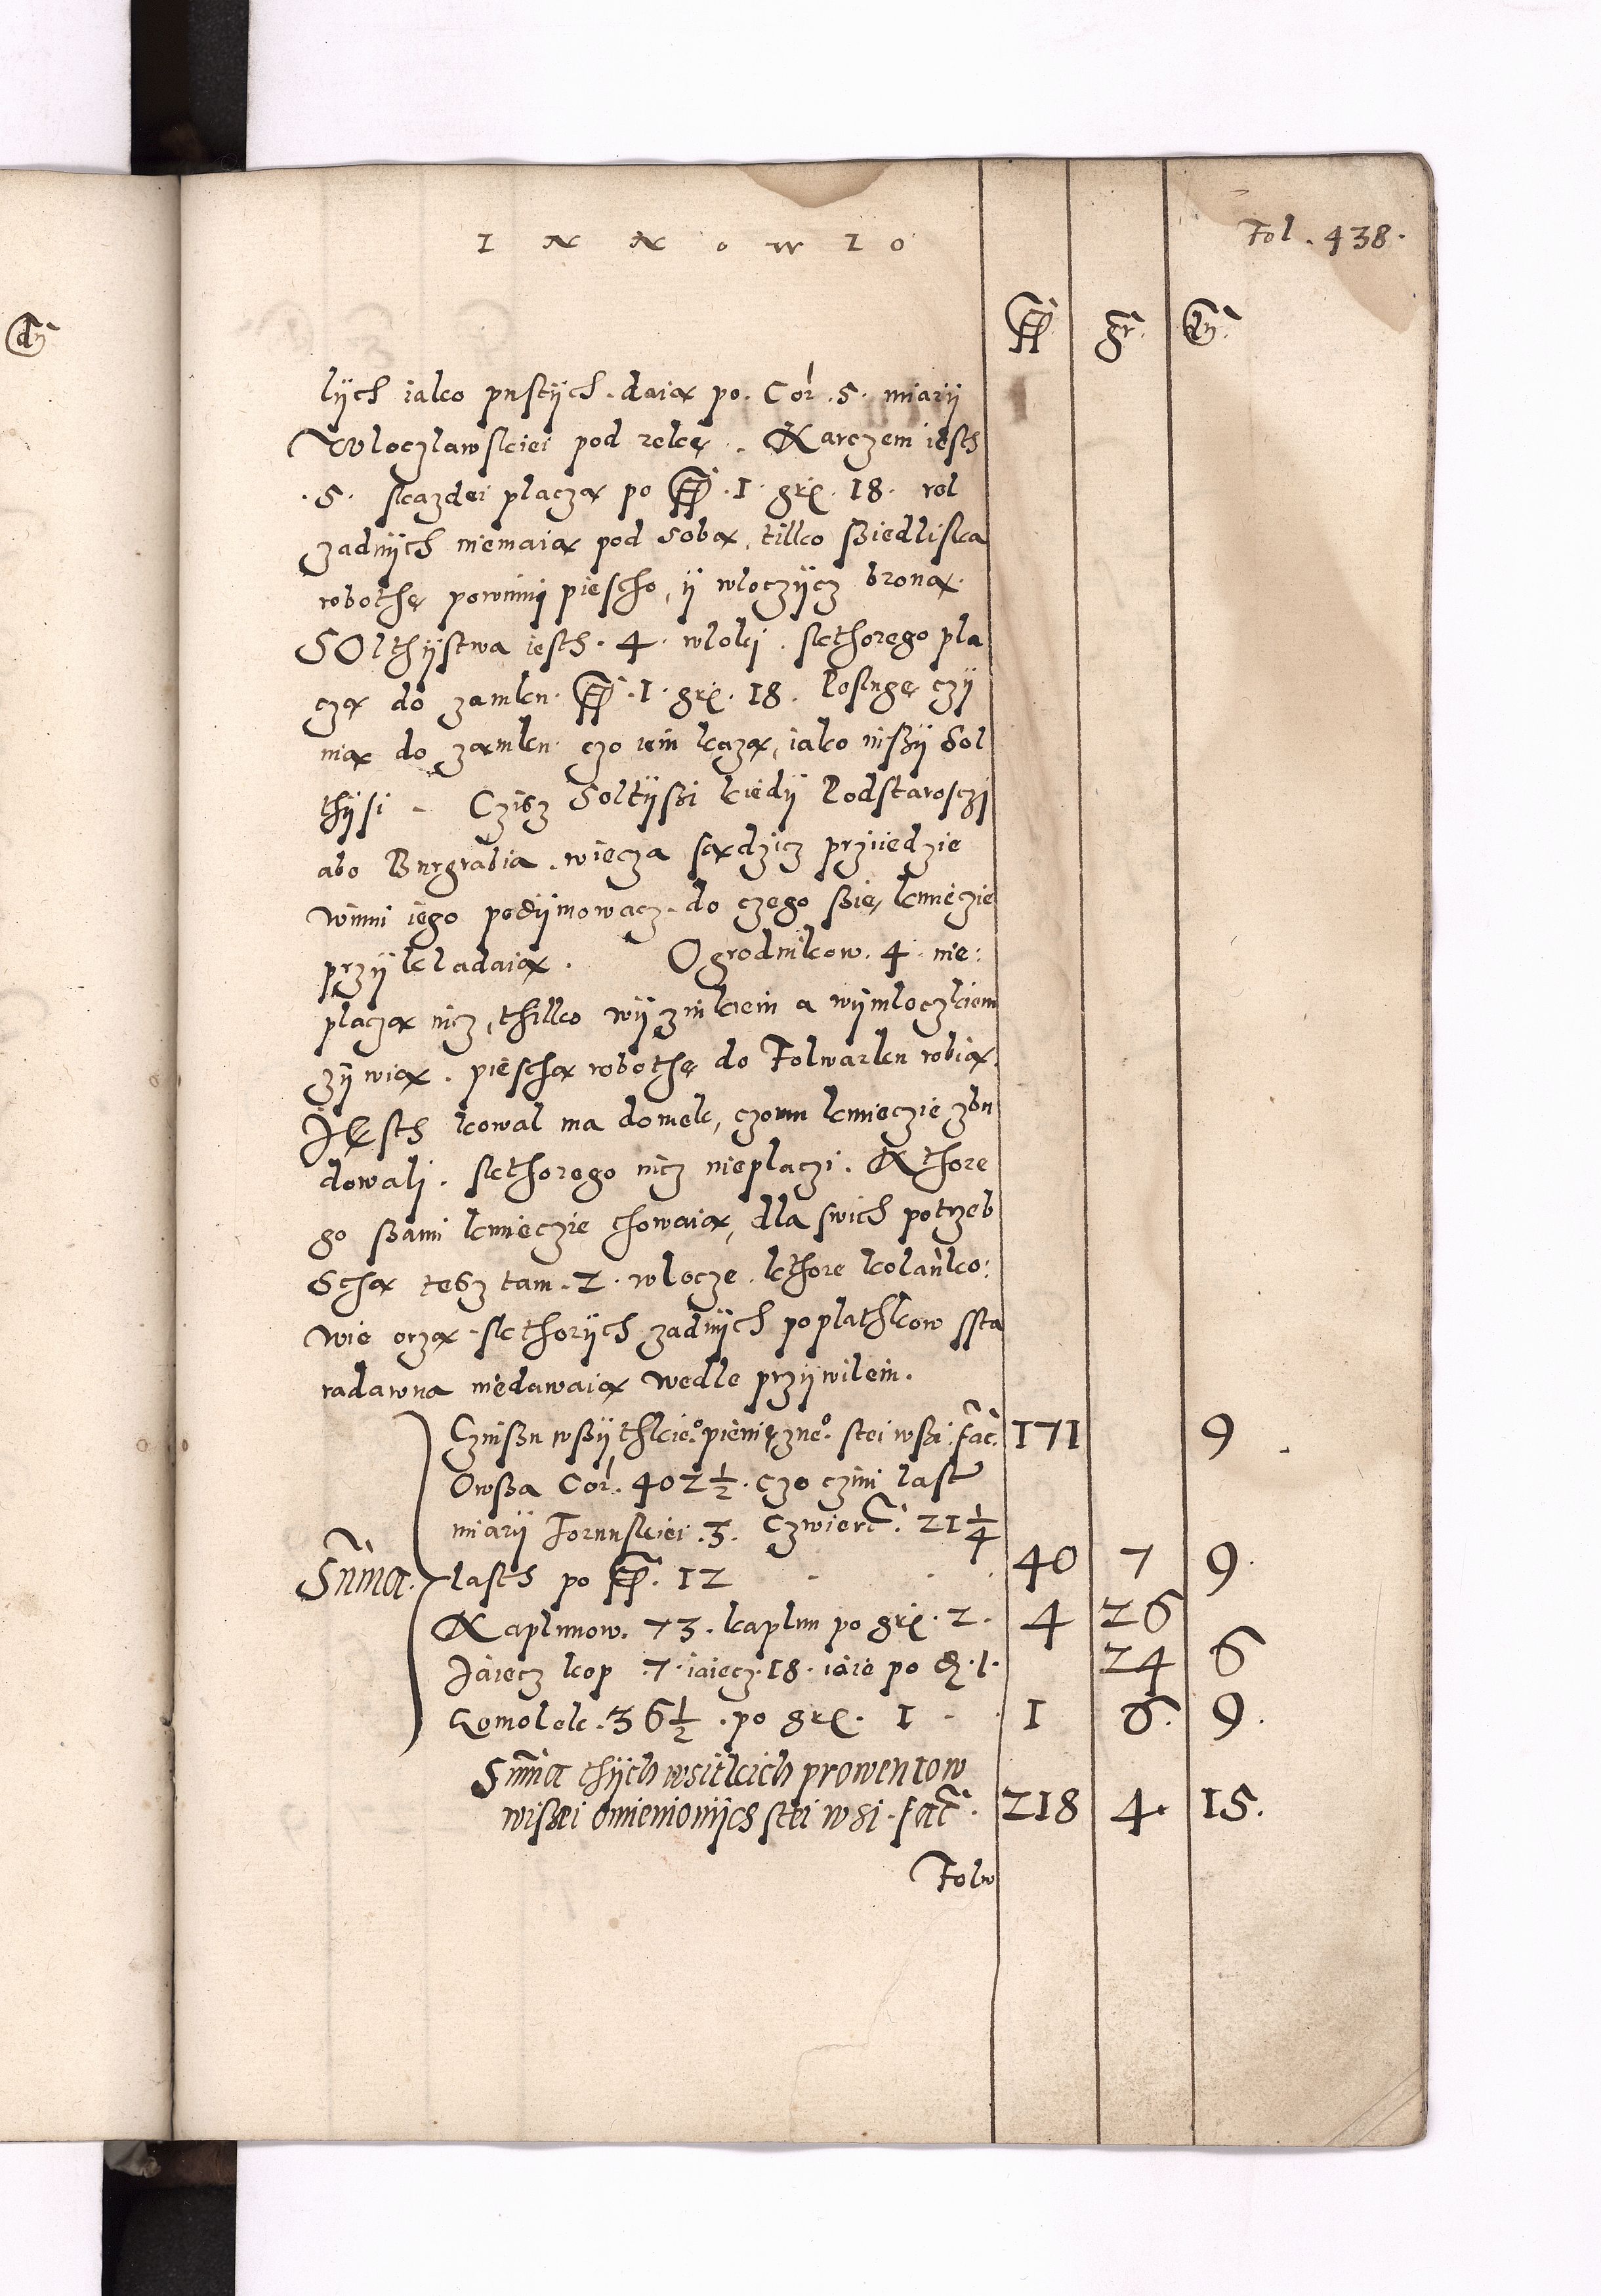 INNOWLO
Fol. 438.
fl gr. dn.
dn
lÿch iako pustÿch. daią po. Cor. 5. miarÿ
Wloczlawskiei pod rekę. Karczem iesth
.5. skazdei placzą po fl .1. grx. 18. rol
zadnÿch niemaią pod sobą, tilko ßiedliska
robothę powinni piescho, ÿ wloczÿcz broną.
SOlthÿstwa iesth. 4. wloki. skthorego pla
czą do zamku. fl .1. grx. 18. Poslugę czÿ
nią do zamku czo iem każą, iako inßÿ Sol
thÿsi - Czisz Soltÿßi kiedÿ Podstarosczi
abo Burgrabia. wiecza sądzicz przÿiedzie
winni iego podÿmowacz. do czego ßię, kmieczie
przÿkladaią. Ogrodnikow. 4. nie:
placzą nicz, thilko wÿzinkiem a wÿmloczkiem
zÿwią. pieschą robothę do Folwarku robią.
JEsth kowal ma domek, czomu kmieczie zbu
dowali. skthorego nicz nieplaczi. Kthore
go ßami kmieczie chowaią, dla swich potrzeb
Są tesz tam. 2. wlocze. kthore kolanko:
wie orzą. skthorÿch zadnÿch poplathkow ssta
radawna niedawaią wedle przÿwileiu.
Czinßu wßÿthkieo. pieniezneo. stei wßi. fac. 171 9
Owßa Cor. 402 1/2. czo czini last
miarÿ Torunskiei. 3. Czwierc. 21 1/4
Summa. lasth po fl. 12 40 7 9.
Kaplunow. 73. kaplun po grx. 2. 4 26
Jaiecz kop 7. iaiecz. 18. iaie po d. 1. 24 6
Gomolek. 36 1/2. po grx. 1 1 6. 9.
Summa thÿch wsitkich prowentow
wißei omienionÿch stei wsi. fac. 218 4. 15.
Folw